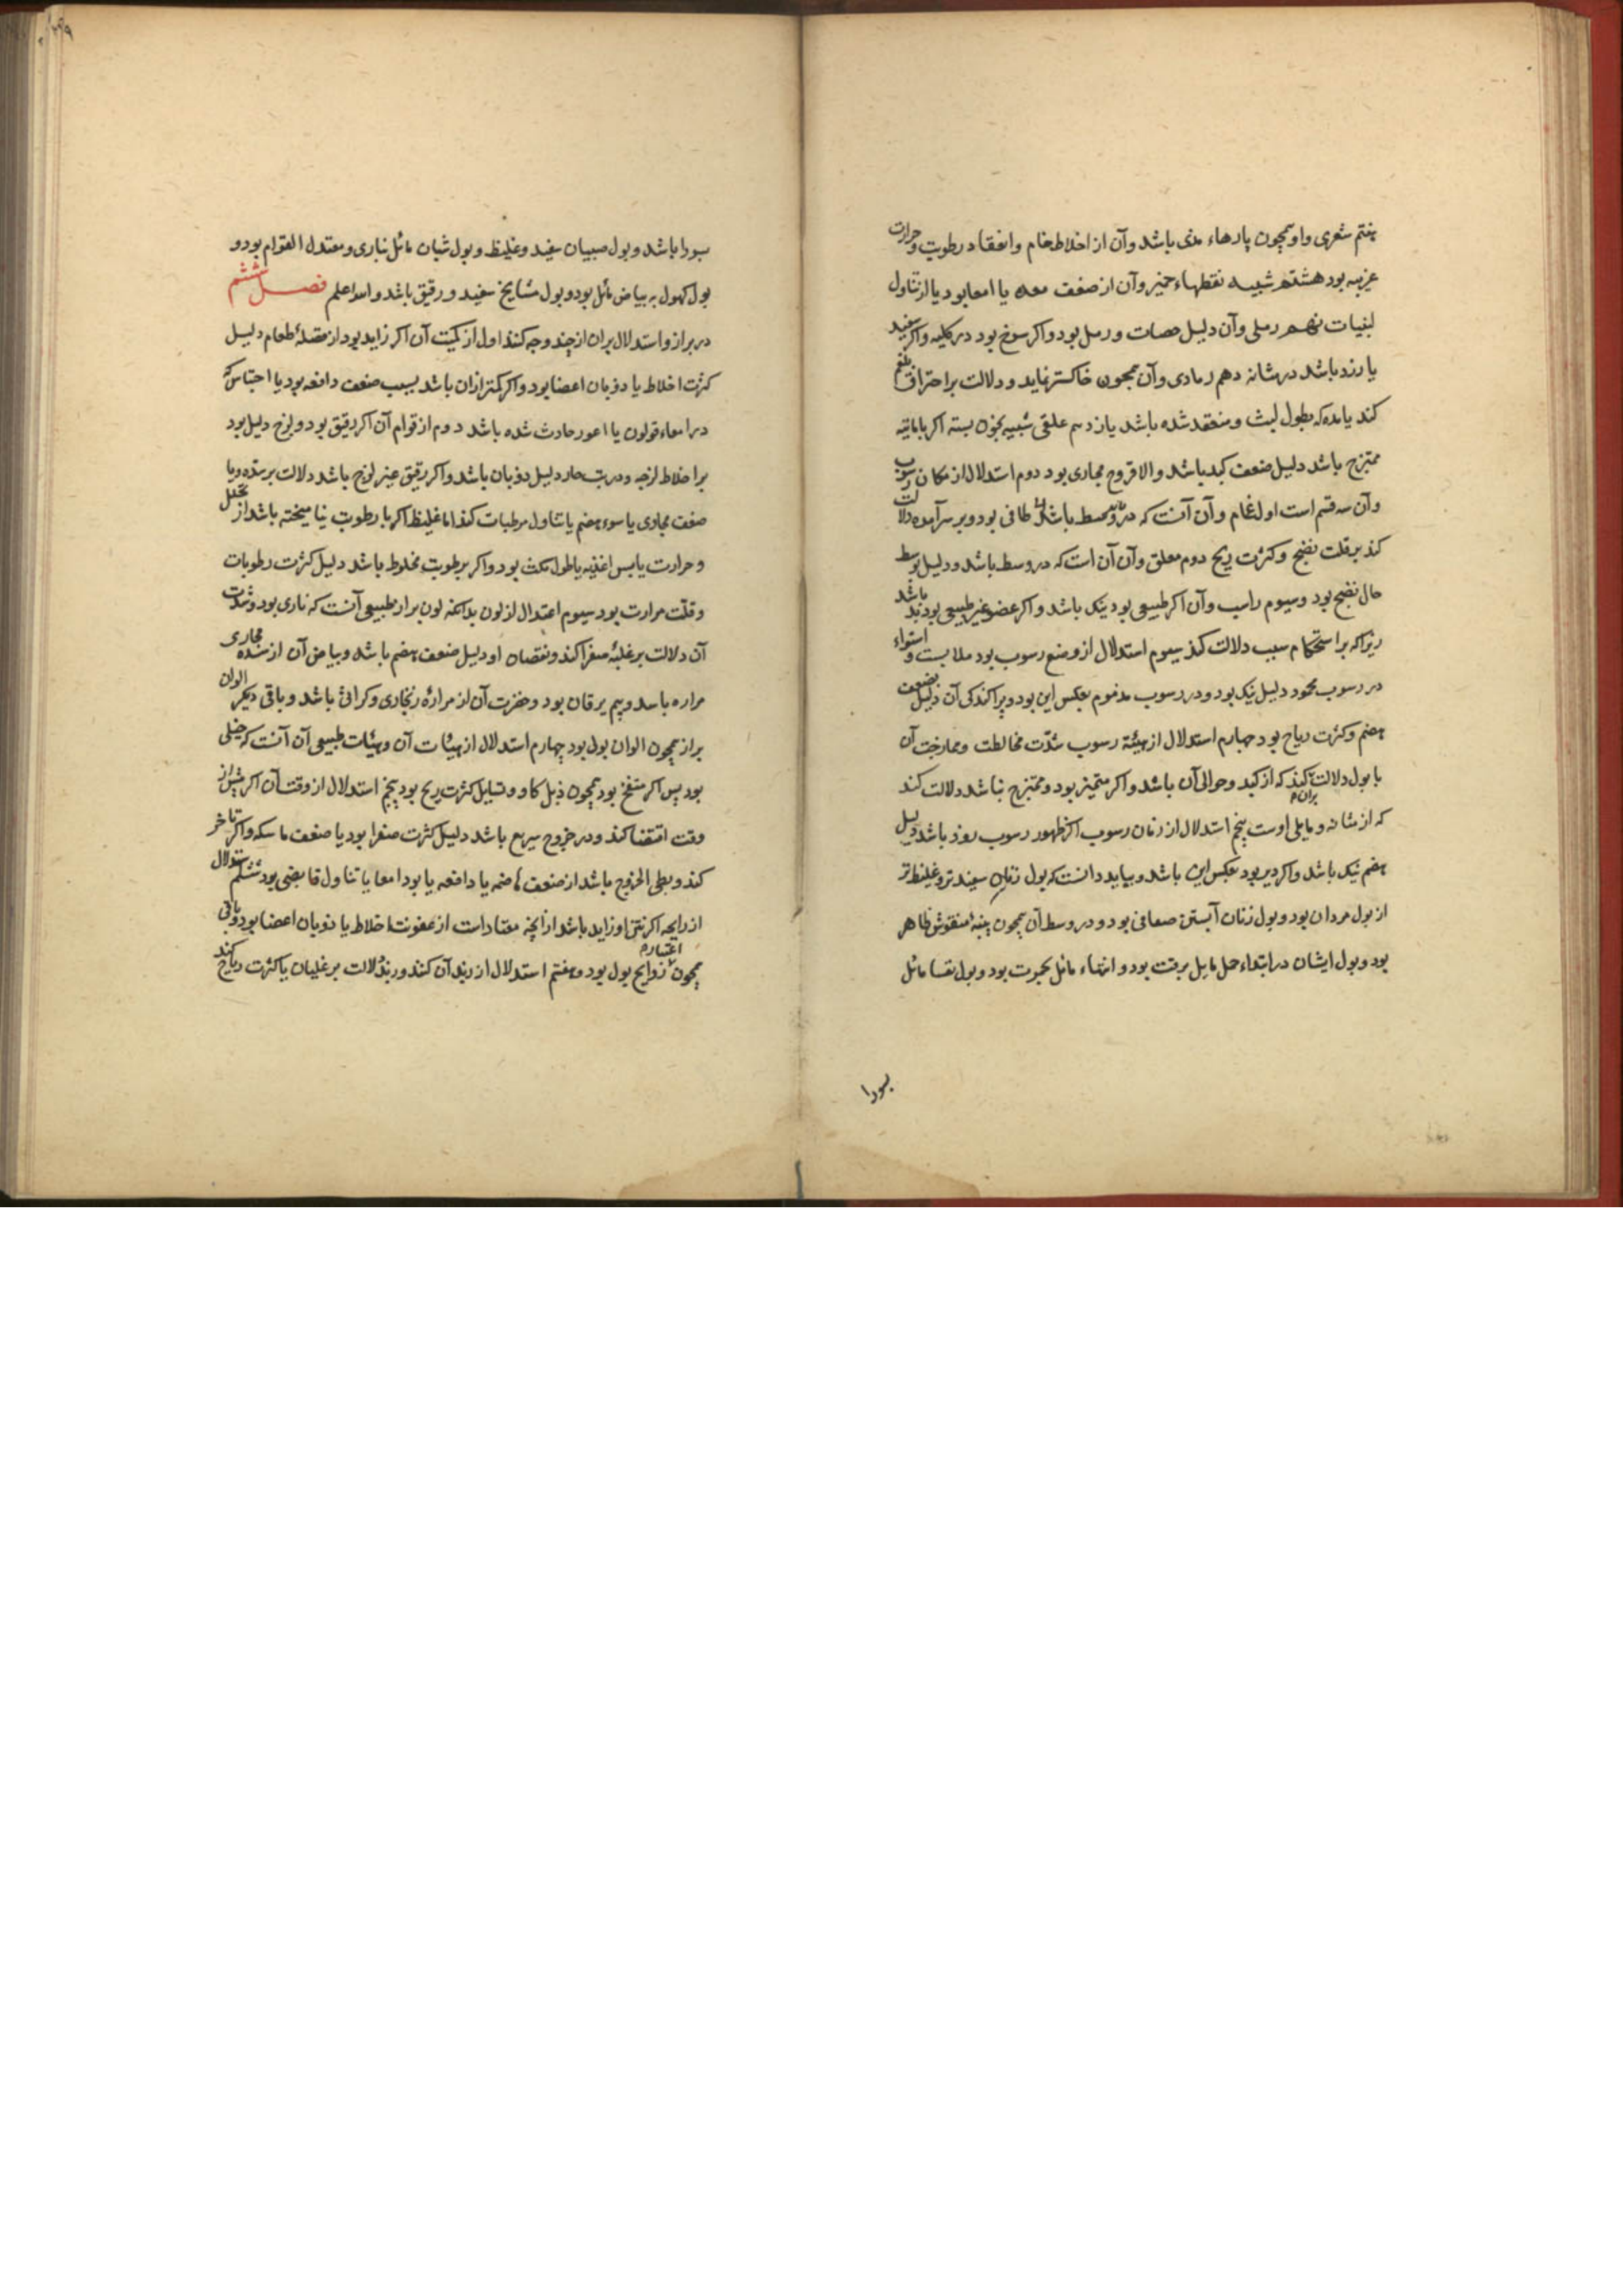 هفتم شعری و او همچون پارهاء مدی باشد و آن از اخلاط خام و انعقاد رطوبت و حرارت
غریبه بود هشتم شبیه نقطهاء خمیر و آن از ضعف معده یا امعا بود یا از تناول
لبنیات نهم رملی و آن دلیل حصات و رمل بود و اکر سرخ بود در کلیه و اکر سفید
یا زرد باشد در مثانه دهم رمادی و آن همچون خاکستر نماید و دلالت بر احتراق بلغم
کند یا مده که بطول لبث و منعقد شده باشد یازدهم علقی شبیه بخون بسته اکر با مائیه
ممتزج باشد دلیل ضعف کبد باشد و الا قروح مجاری بود دوم استدلال از مکان رسوب
و آن سه قسم است اول غمام و آن آنست که در وسط باشد طافی بود و بر سر آمده دلالت
کند بر قلت نضج و کثرت ریح دوم معلق و آن آن است که در وسط باشد و دلیل توسط
حال نضج بود و سیوم راسب و آن اکر طبیعی بود نیک باشد و اکر غیر طبیعی بود بد باشد
زیرا که بر استحکام سبب دلالت کند سیوم استدلال از وضع رسوب بود ملاست و استواء
در رسوب محمود دلیل نیک بود و در رسوب مذموم بعکس این بود و پراکندکی آن دلیل ضعف
هضم و کثرت ریاح بود چهارم استدلال از هیئة رسوب شدّت مخالطت و ممازجت آن
با بول دلالت کند بران که از کبد و حوالی آن باشد و اکر متمیز بود و ممتزج نباشد دلالت کند
که از مثانه و مایلی اوست پنجم استدلال از زمان رسوب اکر ظهور رسوب زود باشد دلیل
هضم نیک باشد و اکر دیر بود بعکس این باشد و بباید دانست که بول زنان سفیدتر و غلیظتر
از بول مردان بود و بول زنان آبستن صافی بود و در وسط آن همچون پنبهٔ منقوش ظاهر
بود و بول ایشان در ابتداء حمل مایل برقت بود و انتهاء مائل بحمرت بود و بول نفسا مائل
بسودا
بسودا باشد و بول صبیان سفید و غلیظ و بول شبان مائل بناری و معتدل القوام بود و
بول کهول به بیاض مائل بود و بول مشایخ سفید و رقیق باشد و الله اعلم فصل ششم
در براز و استدلال بران از چند وجه کنند اول از کمیت آن اکر زاید بود از فضلهٔ طعام دلیل
کثرت اخلاط یا ذوبان اعضا بود و اکر کمتر ازان باشد بسبب ضعف دافعه بود یا احتباس که
در امعاء قولون یا اعور حادث شده باشد دوم از قوام آن اکر رقیق بود و لزج دلیل بود
بر اخلاط لزجه و در تب حار دلیل ذوبان باشد و اکر رقیق غیر لزج باشد دلالت بر سدّه و یا
ضعف مجاری یا سوء هضم یا تناول مرطبات کند اما غلیظ اکر با رطوبت نیامیخته باشد از تحلل
و حرارت یا یبس اغذیه یا طول مکث بود و اکر برطوبت مخلوط باشد دلیل کثرت رطوبات
و قلّت مرارت بود سیوم اعتدال از لون بدانکه لون براز طبیعی آنست که ناری بود و شدّت
آن دلالت بر غلبهٔ صفرا کند و نقصان او دلیل ضعف هضم باشد و بیاض آن از سدّه مجاری
مراره باشد و بیم یرقان بود و خضرت آن از مرارهٔ زنجاری و کراثی باشد و باقی دیکر الوان
براز همچون الوان بول بود چهارم استدلال از هیئات آن و هیئات طبیعی آن آنست که
بود پس اکر منتفخ بود همچون ذبل کاو و دلیل کثرت ریح بود پنجم استدلال از وقت آن اکر پیش از
وقت اقتضا کند و در خروج سریع باشد دلیل کثرت صفرا بود یا ضعف ماسکه و اکر تأخر
کند و بطی الخروج باشد از ضعف هاضمه یا دافعه یا امعا یا تناول قابضی بود ششم استدلال
از رایحه اکر نتن او زاید باشد از آنچه معتاد است از عفونت اخلاط یا ذوبان اعضا بود و باقی
همچون اعتبار روایح بول بود و هفتم استدلال از زبد آن کنند و زبد دلالت بر غلیان یا کثرت ریاح کند